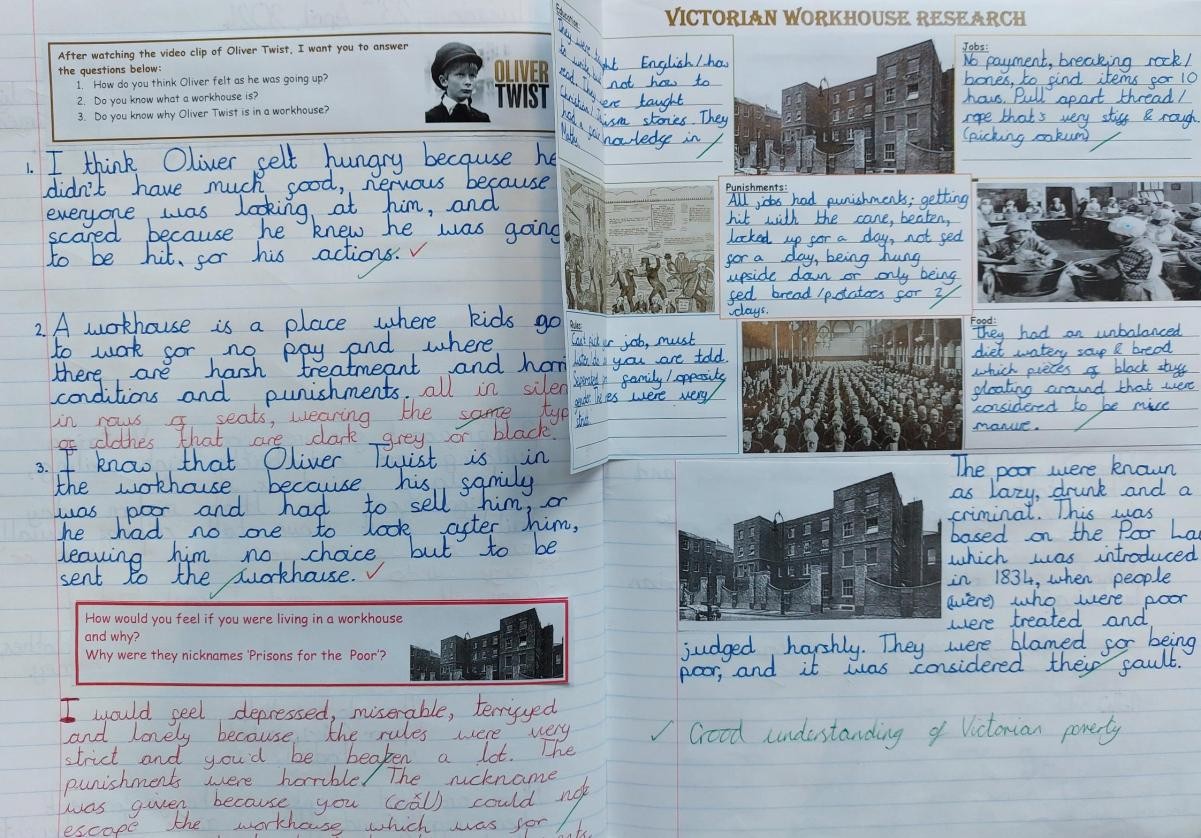 After watching the video clip of Oliver Twist, I want you to answer
the questions below:
1. How do you think Oliver felt as he was going up?
2. Do you know what a workhouse is?
3. Do you know why Oliver Twist is in a workhouse?
OLIVER
TWIST
1. I think Oliver felt hungry because he
didn't have much food, nervous because
everyone was looking at him, and
scared because he knew he was going
to be hit, for his actions.
2. A workhouse is a place where kids go
to work for no pay and where
there are harsh treatmeant and
conditions and punishments. all in
in rows of seats, wearing the same
of clothes that are dark grey or black.
3. I know that Oliver Twist is in
the workhouse because his family
was poor and had to sell him, or
he had no one to look after him,
leaving him no choice but to be
sent to the workhouse.
How would you feel if you were living in a workhouse
and why?
Why were they nicknames 'Prisons for the Poor'?
I would feel depressed, miserable, terrifyed
and lonely because the rules were very
strict and you'd be beaten a lot. The
punishments were horrible. The nickname
was given because you could not
escape the workhouse which was for
VICTORIAN WORKHOUSE RESEARCH
Education:
They were English/how
to write but not how to
read. They were taught
stories. They
had a knowledge in
Maths
Jobs:
No payment, breaking rock/
bones, to find items for 10
hours. Pull apart thread/
rope that's very stiff & rough.
(picking oakum)
Punishments:
All jobs had punishments; getting
hit with the cane, beaten,
locked up for a day, not fed
for a day, being hung
upside down or only being
fed bread/potatoes for 2
days.
Rules:
Can't pick job, must
you are told.
family/opposite
gender were very
strict.
Food:
They had an unbalanced
diet watery soup & bread
which pieces of black stuff
floating around that were
considered to be mice
manure.
The poor were known
as lazy, drunk and a
criminal. This was
based on the Poor
which was introduced
in 1834, when people
(were) who were poor
were treated and
judged harshly. They were blamed for being
poor, and it was considered their fault.
✓ Good understanding of Victorian poverty